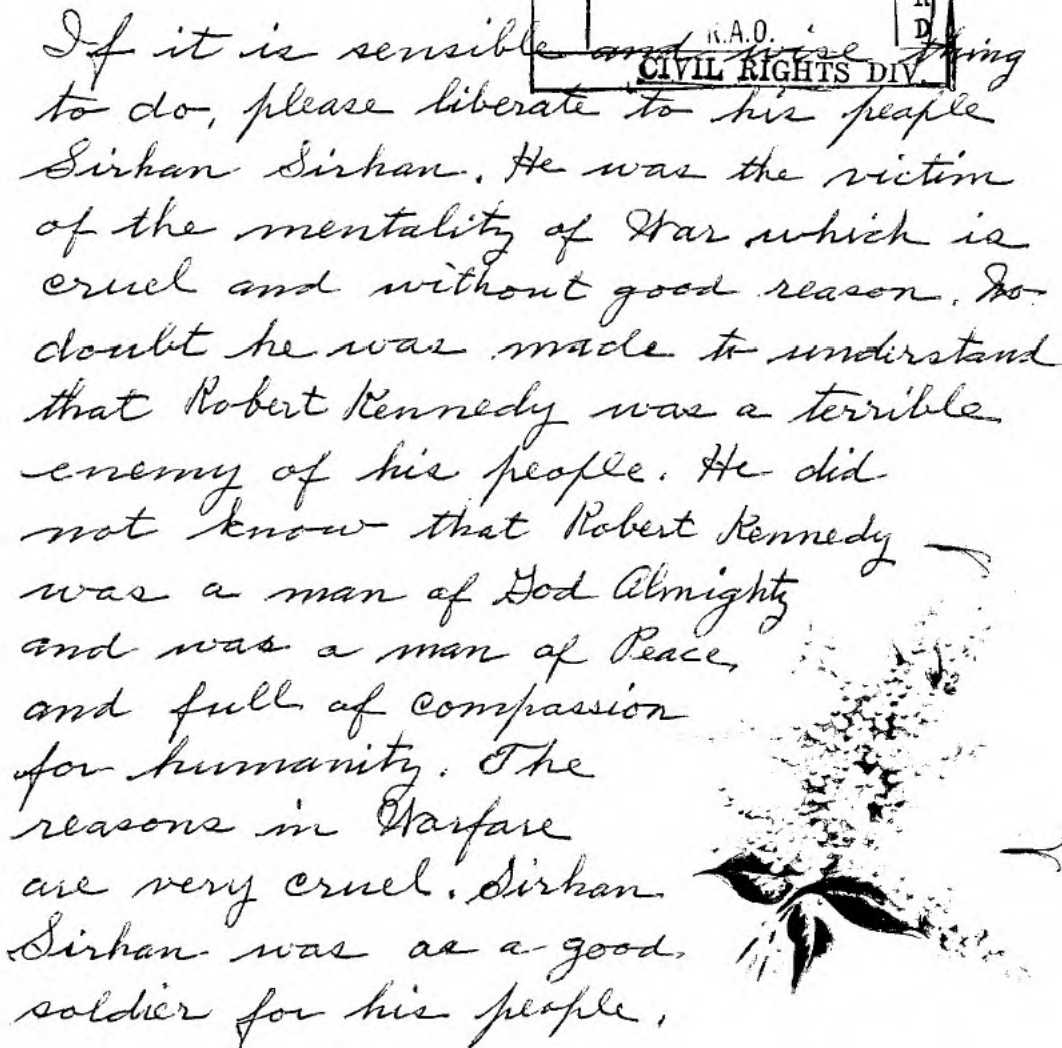 R
R.A.O. D
If it is sensible and wise thing
CIVIL RIGHTS DIV.
to do, please liberate to his people
Sirhan Sirhan. He was the victim
of the mentality of War which is
cruel and without good reason. No
doubt he was made to understand
that Robert Kennedy was a terrible
enemy of his people. He did
not know that Robert Kennedy
was a man of God Almighty
and was a man of Peace,
and full of compassion
for humanity. The
reasons in Warfare
are very cruel. Sirhan
Sirhan was as a good
soldier for his people.